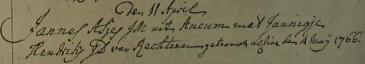 Den 11 April
Jannes Asjes JM uit Ancum met Jannegje
Hendriks JD van Rechteren getrouwt den 4 Maij 1766.